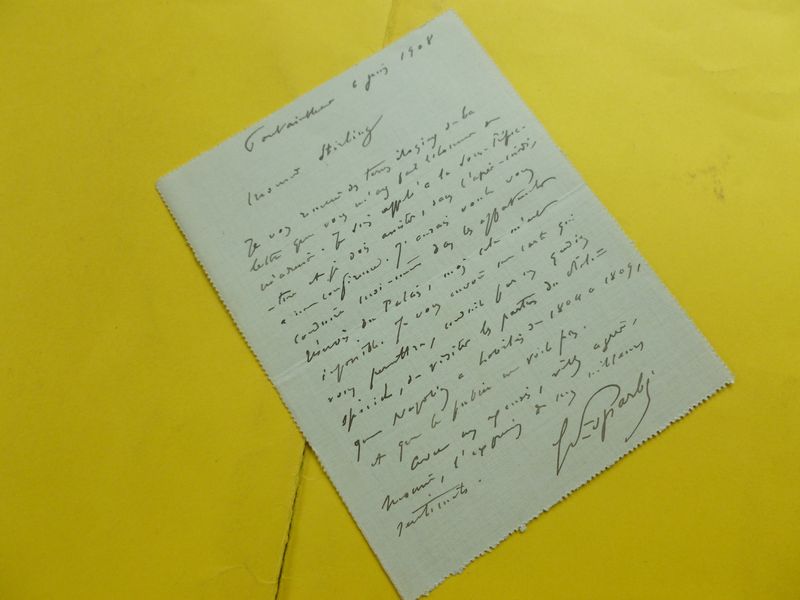 Fontainebleau 6 juin 1908
Monsieur Stirling
Je vous remercie des termes élogieux de la
lettre que vous m'avez fait l'honneur de
m'adresser. Je suis appelé à la Sous-Préfec-
-ture et je dois assister, dans l'après-midi,
à une conférence. J'aurais voulu vous
conduire moi-même dans les appartements
réservés du Palais, mais cela m'est
impossible. Je vous envoie une carte qui
vous permettra, conduit par un gardien
spécial, de visiter les parties du château
que Napoléon a habitées de 1804 à 1809,
et que le public ne voit pas.
Avec mes regrets, veuillez agréer,
Monsieur, l'expression de mes meilleurs
sentiments.